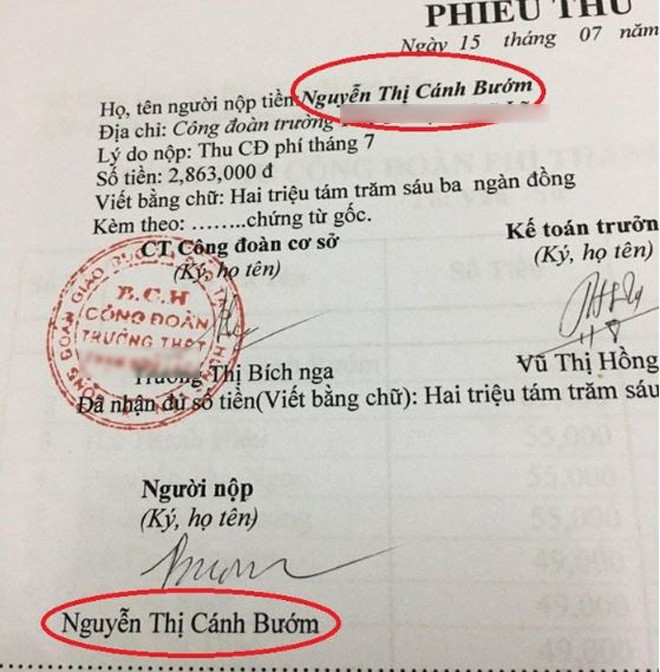 PHIẾU THU
Ngày 15 tháng 07 năm
Họ, tên người nộp tiền: Nguyễn Thị Cánh Bướm
Địa chỉ: Công đoàn trường
Lý do nộp: Thu CĐ phí tháng 7
Số tiền: 2,863,000 đ
Viết bằng chữ: Hai triệu tám trăm sáu ba ngàn đồng
Kèm theo: ........chứng từ gốc.
CT Công đoàn cơ sở
(Ký, họ tên)
Kế toán trưởn
(Ký, họ tên)
B.C.H
CÔNG ĐOÀN
TRƯỜNG THPT
Trương Thị Bích nga
Vũ Thị Hồng
Đã nhận đủ số tiền(Viết bằng chữ): Hai triệu tám trăm sáu
Người nộp
(Ký, họ tên)
Bướm
Nguyễn Thị Cánh Bướm
55,000
55,000
55,000
49,000
49,000
49,000